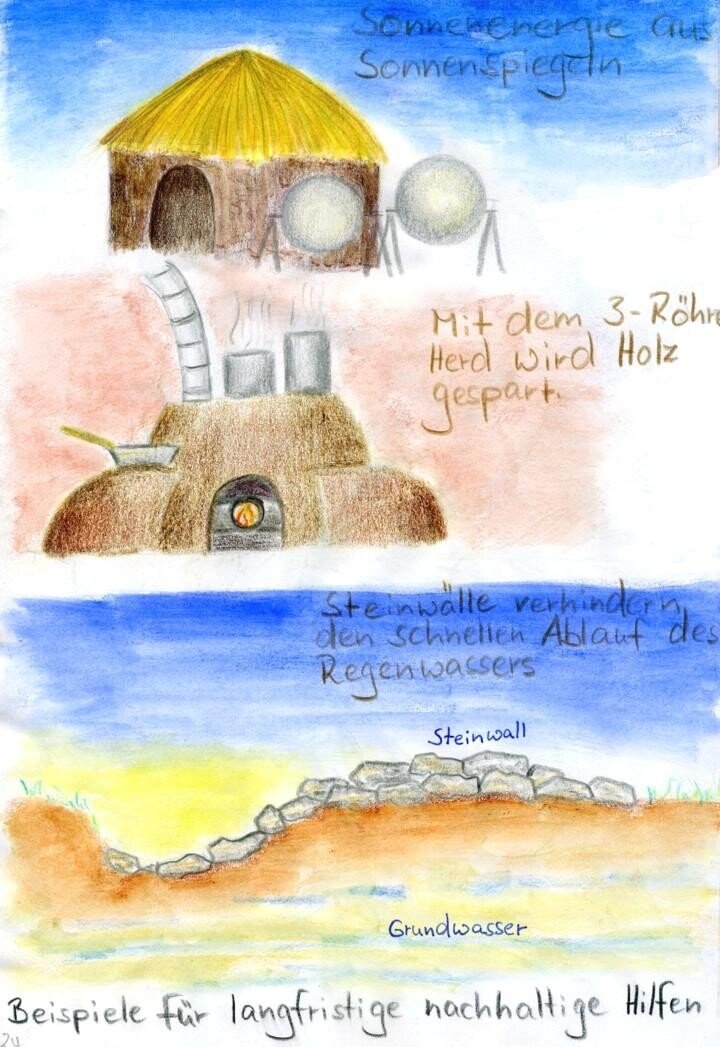 Sonnenenergie aus
Sonnenspiegeln
Mit dem 3-Röhre
Herd wird Holz
gespart.
Steinwälle verhindern
den schnellen Ablauf des
Regenwassers
Steinwall
Grundwasser
Beispiele für langfristige nachhaltige Hilfen